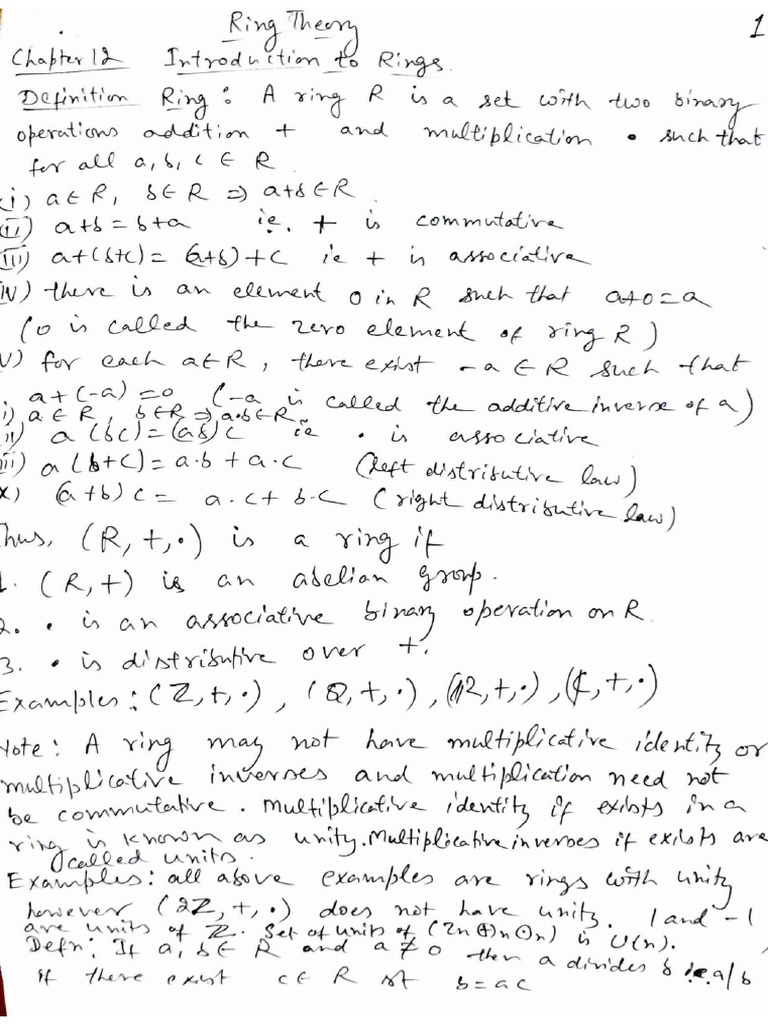 Ring Theory 1
Chapter 12 Introduction to Rings.
Definition Ring : A ring R is a set with two binary
operations addition + and multiplication • such that
for all a, b, c ∈ R
i) a ∈ R, b ∈ R ⇒ a+b ∈ R
(ii) a+b = b+a ie. + is commutative
(iii) a+(b+c) = (a+b)+c ie + is associative
iv) there is an element 0 in R such that a+0=a
(0 is called the zero element of ring R)
v) for each a∈R, there exist -a ∈ R such that
a+(-a)=0 (-a is called the additive inverse of a)
i) a ∈ R, b∈R ⇒ a.b∈R
ii) a(bc)=(ab)c ie • is associative
iii) a(b+c) = a.b + a.c (left distributive law)
x) (a+b)c = a.c + b.c (right distributive law)
hus, (R, +, •) is a ring if
1. (R, +) is an abelian group.
2. • is an associative binary operation on R.
3. • is distributive over +.
Examples: (Z, +, •), (Q, +, •), (R, +, •), (C, +, •)
Note: A ring may not have multiplicative identity or
multiplicative inverses and multiplication need not
be commutative. Multiplicative identity if exists in a
ring is known as unity. Multiplicative inverses if exists are
called units.
Examples: all above examples are rings with unity
however (2Z, +, •) does not have unity. 1 and -1
are units of Z. Set of units of (Zn ⊕n ⊙n) is U(n).
Defn: If a, b ∈ R and a ≠ 0 then a divides b i.e. a/b
if there exist c ∈ R st b = ac